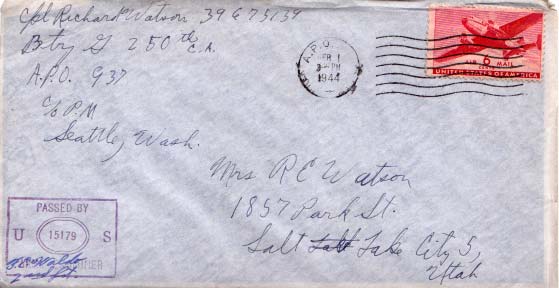 Cpl Richard Watson 39675139
Btry G 250th C.A.
A.P.O. 937
c/o P.M
Seattle, Wash.
A.P.O.
1
PM
1944
6
AIR MAIL
CENTS
UNITED STATES OF AMERICA
Mrs R C Watson
1857 Park St.
Salt Salt Lake City 5,
Utah
PASSED BY
U 15179 S